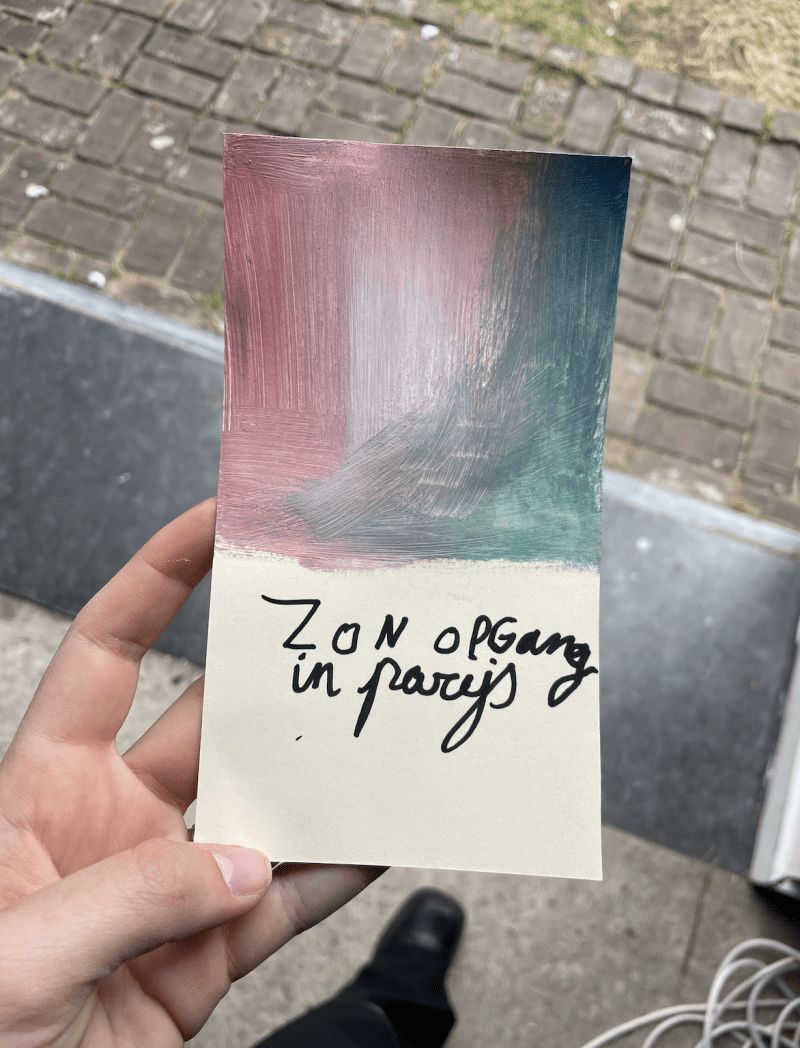 ZON OPGang
in parijs